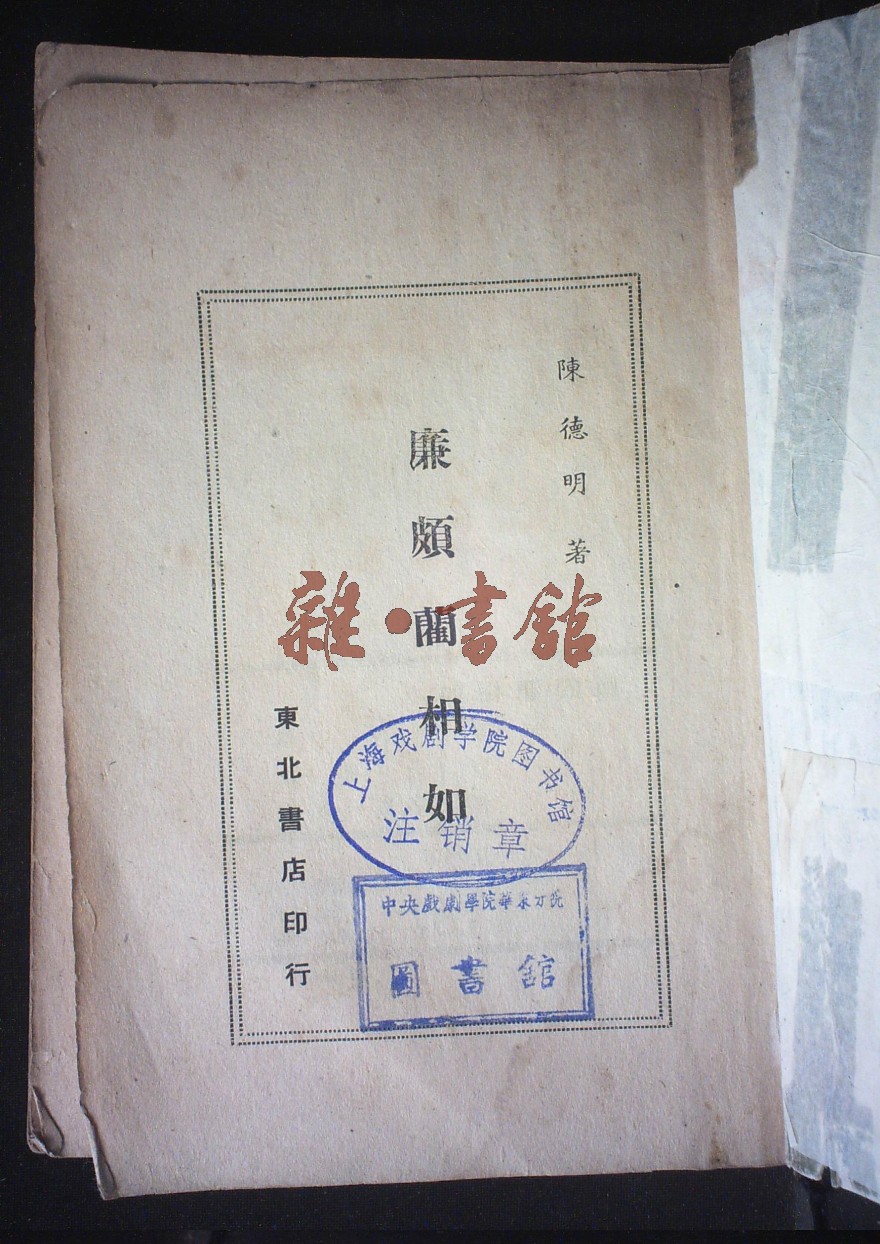 陳德明著
廉頗藺相如
東北書店印行
雜·書館
上海戏剧学院图书馆
注销章
中央戲劇學院華東分院
圖書館